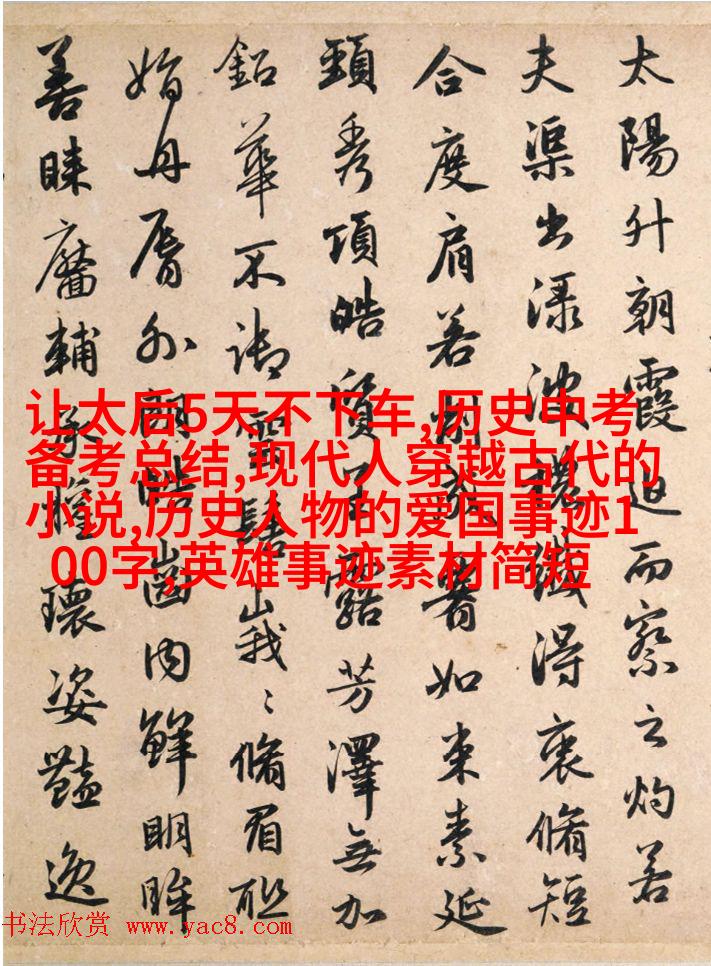 太陽升朝霞迫而察之灼若
夫渠出渌波穠纖得衷脩短
合度肩若削成署如束素延
頸秀項皓質呈露芳澤無加
鉛華不御雲髻峩〻脩眉聯
娟丹脣外朗皓齒内鮮明眸
善睞靨輔承權瓌姿豔逸
让太后5天不下车,历史中考
备考总结,现代人穿越古代的
小说,历史人物的爱国事迹1
00字,英雄事迹素材简短
书法欣赏 www.yac8.com